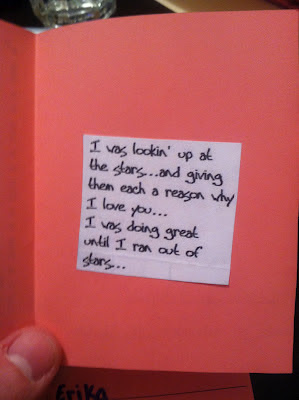 I was lookin' up at
the stars...and giving
them each a reason why
I love you...
I was doing great
until I ran out of
stars...
Erika